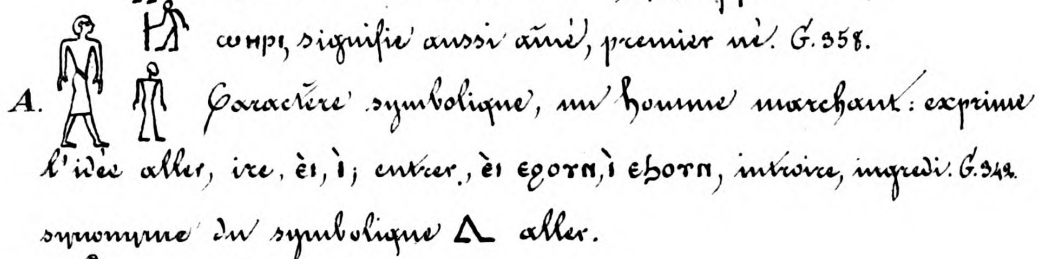 ϣⲏⲣⲓ, signifie aussi aîné, premier né. G. 358.
A. Caractère symbolique, un homme marchant : exprime
l'idée aller, ire, ⲉ̀ⲓ, ⲓ̀; entrer, ⲉ̀ⲓ ⲉϩⲟⲩⲛ, ⲓ̀ ⲉϧⲟⲩⲛ, introire, ingredi. G. 342.
synonyme du symbolique 𓂻 aller.